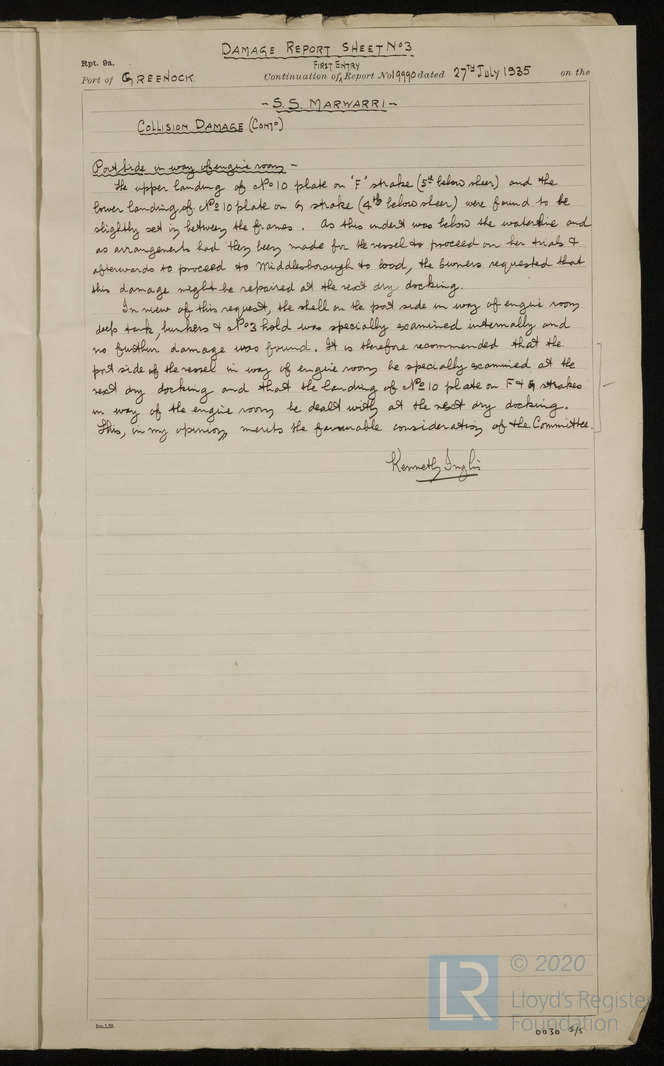 DAMAGE REPORT SHEET No 3
Rpt. 9a.
FIRST ENTRY
Port of GREENOCK. Continuation of Report No 19990 dated 27TH July 1935 on the
- S.S. MARWARRI -
COLLISION DAMAGE (CONTD)
Port side in way of engine room -
The upper landing of No 10 plate on 'F' strake (5th below sheer) and the
lower landing of No 10 plate on G strake (4th below sheer) were found to be
slightly set in between the frames. As this indent was below the waterline and
as arrangements had then been made for the vessel to proceed on her trials &
afterwards to proceed to Middlesborough to load, the owners requested that
this damage might be repaired at the next dry docking.
In view of this request, the shell on the port side in way of engine room
deep tank, bunkers & No 3 hold was specially examined internally and
no further damage was found. It is therefore recommended that the
port side of the vessel in way of engine room be specially examined at the
next dry docking and that the landing of No 10 plate on F & G strakes
in way of the engine room be dealt with at the next dry docking.
This, in my opinion, merits the favourable consideration of the Committee.
Kenneth Inglis
LR
© 2020
Lloyd's Register
Foundation
0030 5/5